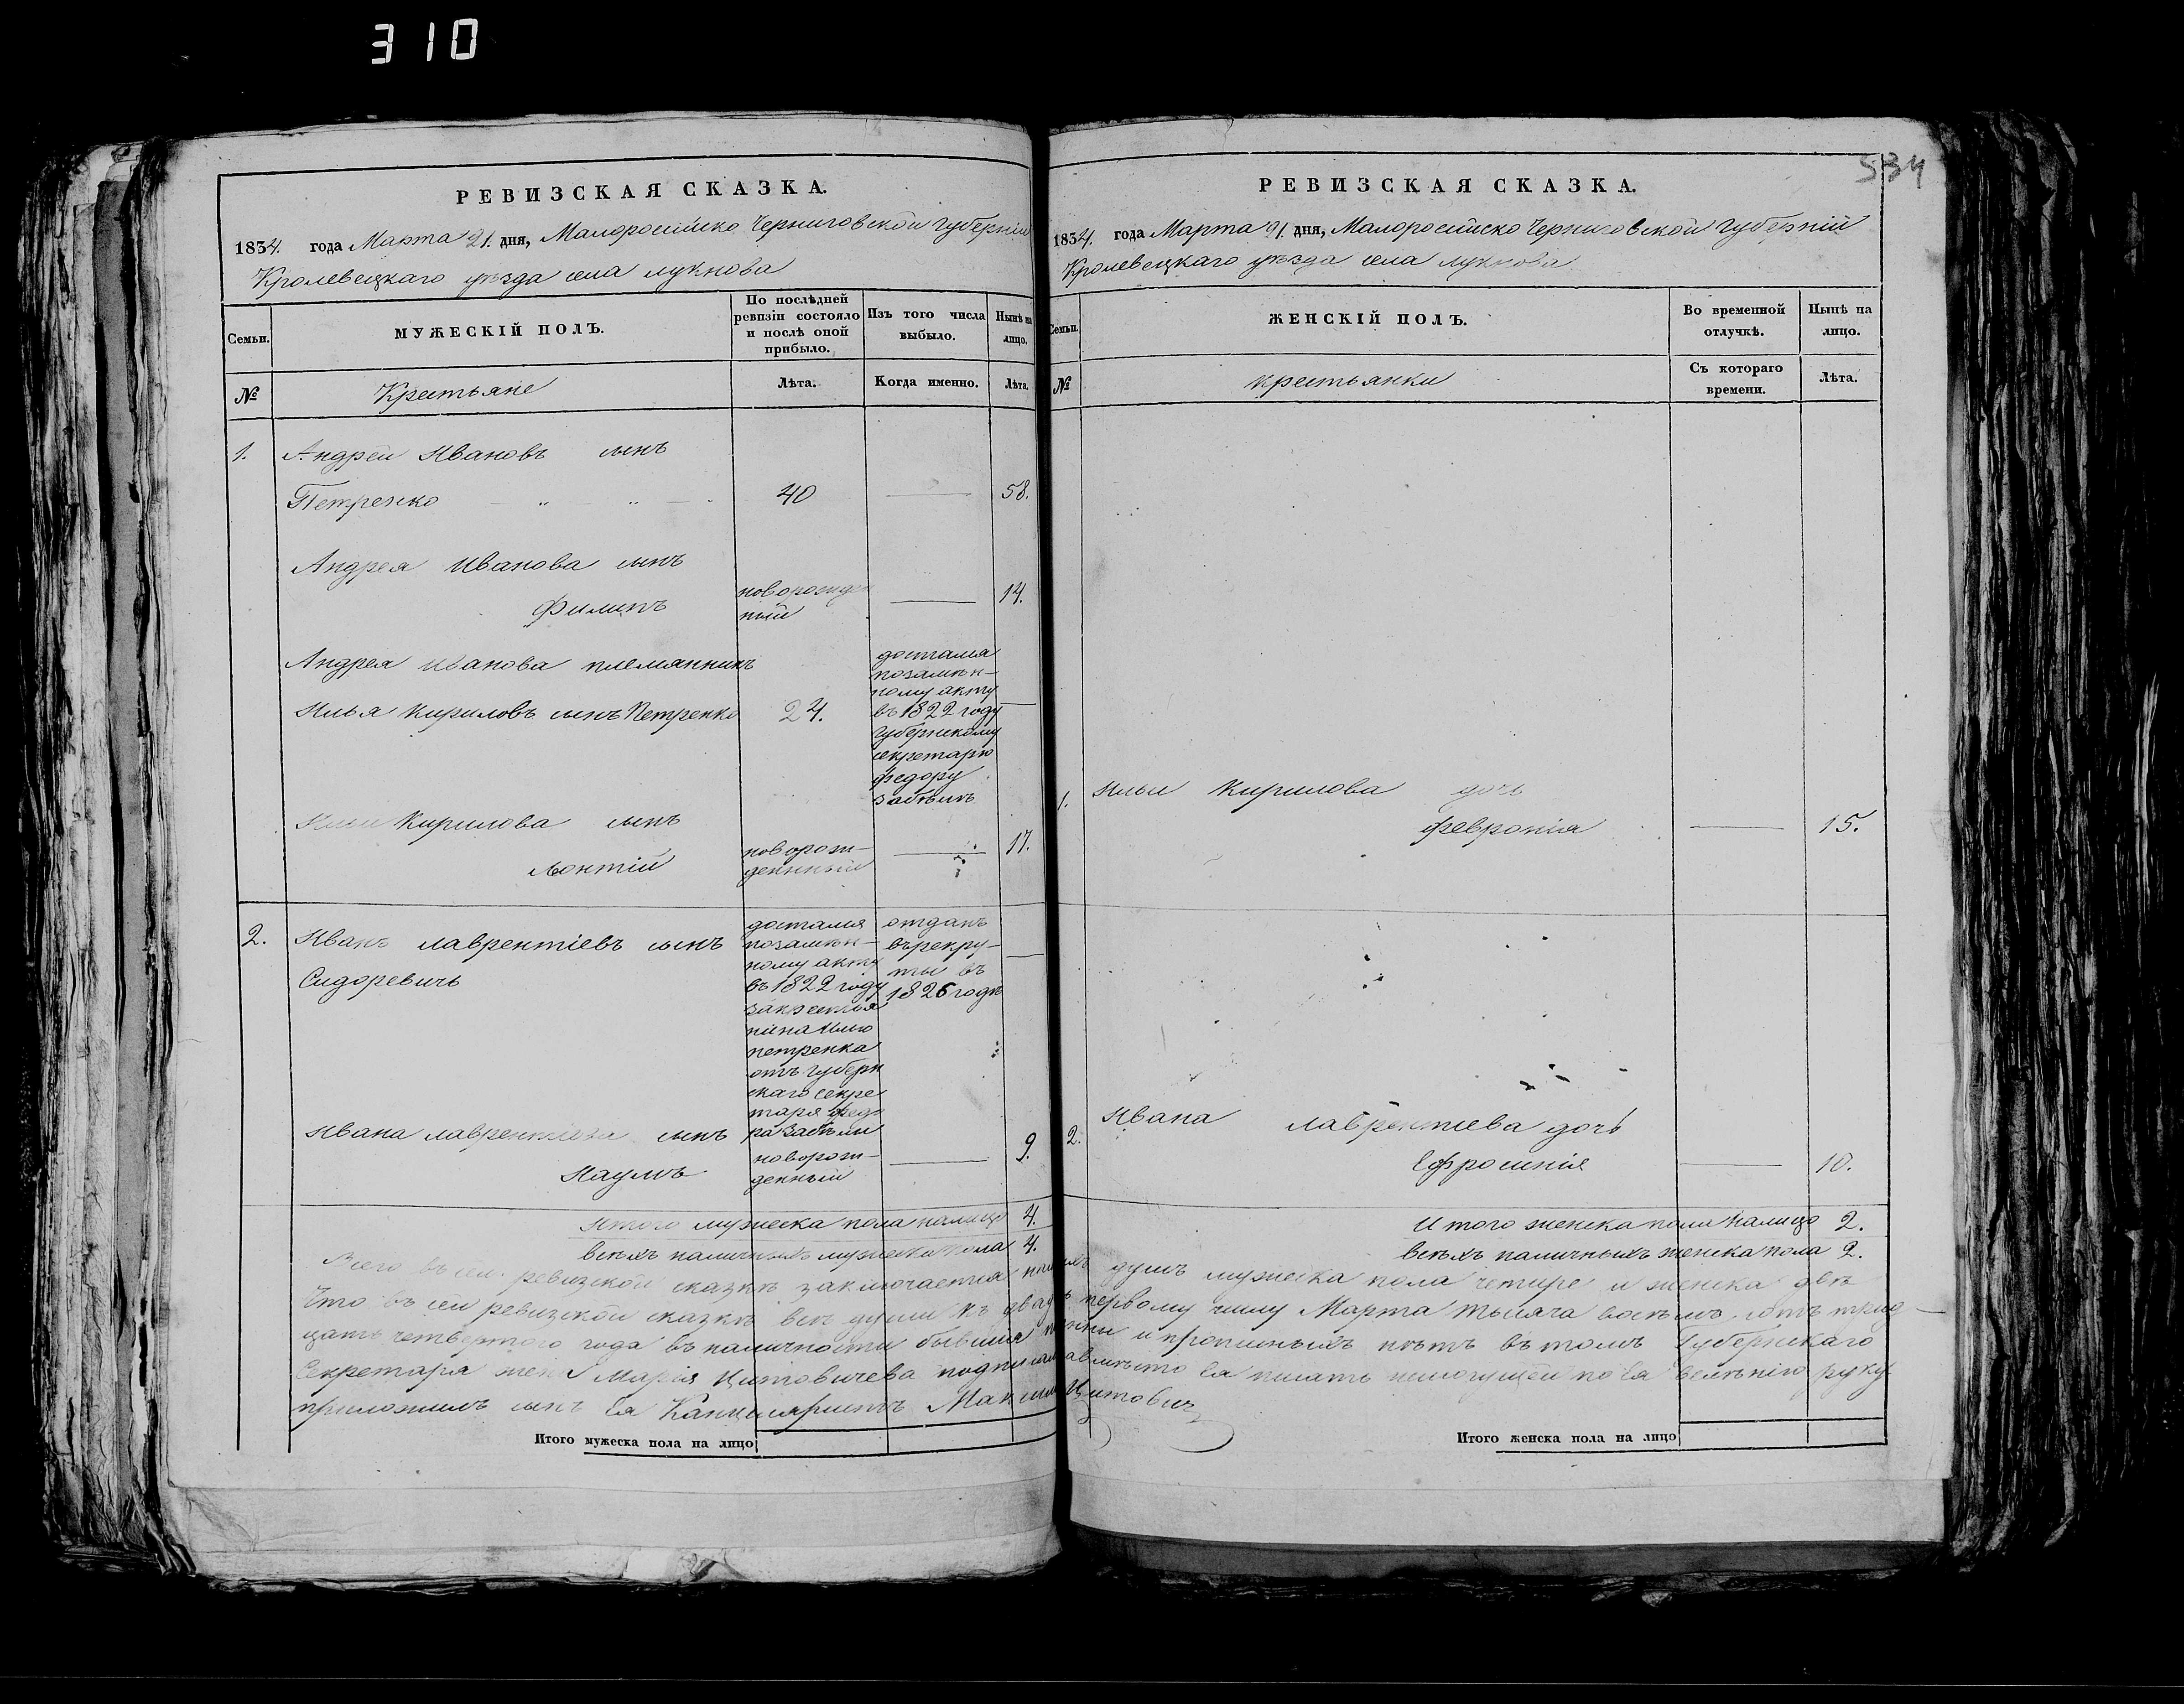 310
534
РЕВИЗСКАЯ СКАЗКА.
1834. года Марта 21. дня, Малоросійско Черниговской Губерніи
Кролевецкаго уезда села лукнова
Семьи.
МУЖЕСКІЙ ПОЛЪ.
По послѣдней
ревизіи состояло
и послѣ оной
прибыло.
Изъ того числа
выбыло.
Нынѣ на
лицо.
№
Крестьяне
Лѣта.
Когда именно.
Лѣта.
1. Андрей Ивановъ сынъ
Петренко 40 58.
Андрея Иванова сынъ
Филипъ
новорожден
ный
14.
Андрея Иванова племянникъ
Илья Кириловъ сынъ Петренко 24.
достался
позамѣн-
ному акту
въ 1822 году
Губернскому
секретарю
Федору
Ильи Кирилова сынъ
Леонтій
новорож-
денный
17.
2. Иванъ лаврентіевъ сынъ
Сидоревичь
достался
позамѣн-
ному акту
въ 1822 году
петренка
отъ Губерн
скаго секре
таря Федо
отданъ
врекру-
ты въ
1826 годѣ
Ивана лаврентіева сынъ
Наумъ
новорож-
денный
9.
Итого мужеска пола налицо 4.
всехъ наличныхъ мужеска пола 4.
РЕВИЗСКАЯ СКАЗКА.
1834. года Марта 21. дня, Малоросійско Черниговской Губерніи
Кролевецкаго уезда села лукнова
Семьи.
ЖЕНСКІЙ ПОЛЪ.
Во временной
отлучкѣ.
Нынѣ на
лицо.
№
крестьянки
Съ котораго
времени.
Лѣта.
1. Ильи Кирилова дочь
Февронія 15.
2. Ивана лаврентиева дочь
Ефросинія 10.
Итого женска пола налицо 2.
всехъ наличныхъ женска пола 2.
Всего въ сей ревизской сказкѣ заключается душъ мужеска пола четире и женска двѣ
Что въ сей ревизской сказкѣ все души къ двадцать первому числу Марта тысяча восемъ сотъ трид-
цать четвертого года въ наличности бывшия и прописныхъ нѣтъ въ томъ Губернскаго
Секретаря жена Марія Цитовичева вместо Ея писать немогущей по Ея велѣнію руку
приложилъ сынъ Ея Канцеляристъ Максимъ Цитовичъ
Итого мужеска пола на лицо
Итого женска пола на лицо